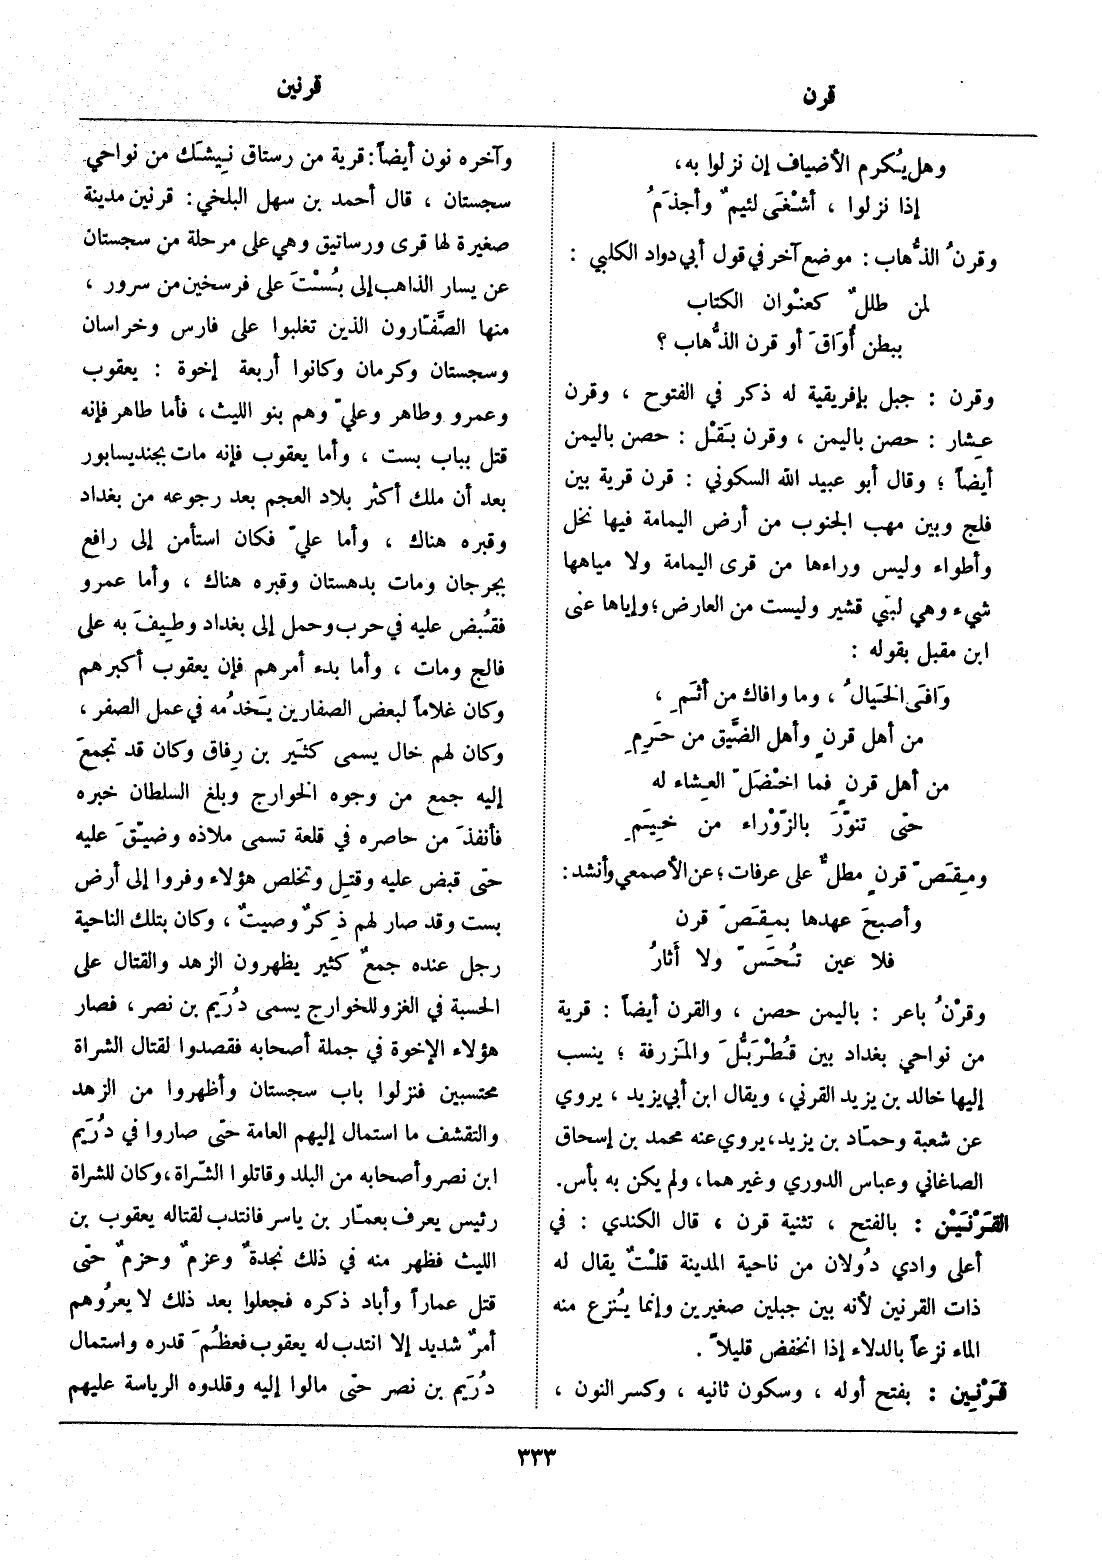 قرن
قرنين
وهل يُكرم الأضياف إن نزلوا به،
إذا نزلوا ، أشْغَى لئيمٌ وأجذَمُ
وقرنُ الذُّهاب : موضع آخر في قول أبي دواد الكلبي :
لمن طللٌ كعنْوان الكتاب
ببطن أُوَاقَ أو قرن الذُّهاب ؟
وقرن : جبل بإفريقية له ذكر في الفتوح ، وقرن
عِشار : حصن باليمن ، وقرن بَقْل : حصن باليمن
أيضاً ؛ وقال أبو عبيد الله السكوني : قرن قرية بين
فلج وبين مهب الجنوب من أرض اليمامة فيها نخل
وأطواء وليس وراءها من قرى اليمامة ولا مياهها
شيء وهي لبني قشير وليست من العارض؛ وإياها عنى
ابن مقبل بقوله :
وَافَى الخَيالُ ، وما وافاك من أَمَمِ ،
من أهل قرنٍ وأهل الضَّيق من حَرِمِ
من أهل قرنٍ فما اخْضَلّ العِشاء له
حتى تنوّرَ بالزّوْراء من خِيَمِ
ومِقَصّ قرنٍ مطلٌّ على عرفات ؛ عن الأصمعي وأنشد :
وأصبحَ عهدها بمِقَصّ قرن
فلا عين تُحَسّ ولا أَثارُ
وقرْنُ باعر : باليمن حصن ، والقرن أيضاً : قرية
من نواحي بغداد بين قُطْرَبُّلَ والمَزرفة ؛ ينسب
إليها خالد بن يزيد القرني ، ويقال ابن أبي يزيد ، يروي
عن شعبة وحمّاد بن يزيد، يروي عنه محمد بن إسحاق
الصاغاني وعباس الدوري وغيرهما، ولم يكن به بأس.
القَرْنَيْن : بالفتح ، تثنية قرن ، قال الكندي : في
أعلى وادي دُولان من ناحية المدينة قلْتٌ يقال له
ذات القرنين لأنه بين جبلين صغيرين وإنما يُنزع منه
الماء نزعاً بالدلاء إذا انخفض قليلاً .
قَرْنِين : بفتح أوله ، وسكون ثانيه ، وكسر النون ،
وآخره نون أيضاً: قرية من رستاق نِيشَك من نواحي
سجستان ، قال أحمد بن سهل البلخي : قرنين مدينة
صغيرة لها قرى ورساتيق وهي على مرحلة من سجستان
عن يسار الذاهب إلى بُسْتَ على فرسخين من سرور ،
منها الصَّفّارون الذين تغلبوا على فارس وخراسان
وسجستان وكرمان وكانوا أربعة إخوة : يعقوب
وعمرو وطاهر وعليّ وهم بنو الليث ، فأما طاهر فإنه
قتل بباب بست ، وأما يعقوب فإنه مات بجنديسابور
بعد أن ملك أكثر بلاد العجم بعد رجوعه من بغداد
وقبره هناك ، وأما عليّ فكان استأمن إلى رافع
بجرجان ومات بدهستان وقبره هناك ، وأما عمرو
فقُبض عليه في حرب وحمل إلى بغداد وطِيفَ به على
فالج ومات ، وأما بدء أمرهم فإن يعقوب أكبرهم
وكان غلاماً لبعض الصفارين يَخدُمه في عمل الصفر ،
وكان لهم خال يسمى كثيّر بن رِفاق وكان قد تجمعَ
إليه جمع من وجوه الخوارج وبلغ السلطان خبره
فأنفذَ من حاصره في قلعة تسمى ملاذه وضيّقَ عليه
حتى قبض عليه وقتل وتخلص هؤلاء وفروا إلى أرض
بست وقد صار لهم ذِكرٌ وصيتٌ ، وكان بتلك الناحية
رجل عنده جمعٌ كثير يظهرون الزهد والقتال على
الحسبة في الغزو للخوارج يسمى دُرَيم بن نصر ، فصار
هؤلاء الإخوة في جملة أصحابه فقصدوا لقتال الشراة
محتسبين فنزلوا باب سجستان وأظهروا من الزهد
والتقشف ما استمال إليهم العامة حتى صاروا في دُرَيم
ابن نصر وأصحابه من البلد وقاتلوا الشّراة، وكان للشراة
رئيس يعرف بعمّار بن ياسر فانتدب لقتاله يعقوب بن
الليث فظهر منه في ذلك نجدةٌ وعزمٌ وحزمٌ حتى
قتل عماراً وأباد ذكره فجعلوا بعد ذلك لا يعرُوهم
أمرٌ شديد إلا انتدب له يعقوب فعظُمَ قدره واستمال
دُرَيم بن نصر حتى مالوا إليه وقلدوه الرياسة عليهم
٣٣٣